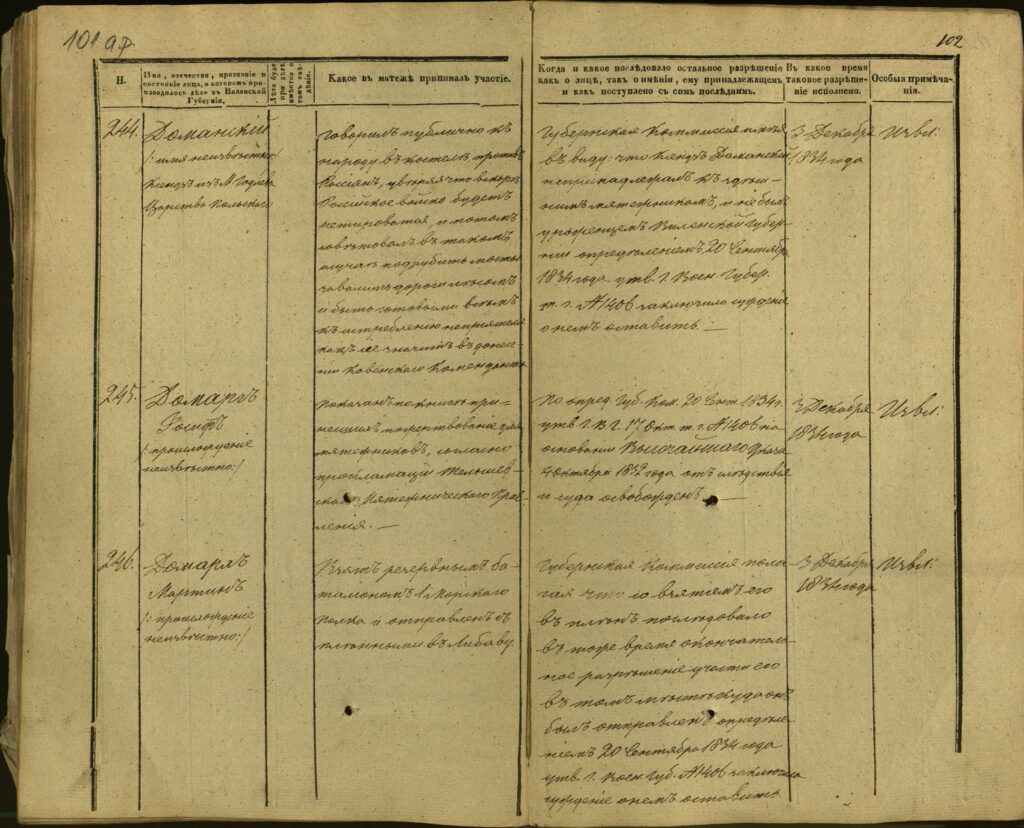 101 об.
102
Н.
Имя, отечество, прозвание и
состояние лица, о котором про-
изводилось дело въ Виленской
Губерніи.
Какое въ мятежѣ принималъ участіе.
Когда и какое послѣдовало остальное разрѣшеніе
какъ о лицѣ, такъ о имѣніи, ему принадлежащемъ
и какъ поступлено съ симъ послѣднимъ.
Въ какое время
таковое разрѣше-
ніе исполнено.
Особыя примѣча-
нія.
244.
Доманскій
/: имя неизвѣстно
Ксендзъ изъ М.
Царства Польскаго
говорилъ публично къ
народу въ костелѣ противъ
Россіянъ, увѣряя что вскорѣ
Россійское войско будетъ
и потомъ
совѣтовалъ въ такомъ
случаѣ подрубить мосты
завалить дороги лѣсомъ
и быть готовыми всѣмъ
къ истребленію непріятеля
какъ се значитъ въ донесе-
ніи Ковенскаго Коменданта
Губернская Коммиссія имѣя
въ виду: что Ксендзъ Доманскій
непринадлежалъ къ здѣш-
нимъ мятежникамъ, и не былъ
уроженцемъ Виленской Губер-
ніи опредѣленіемъ 20 Сентября
1834 года утв. Г. Воен. Губер.
т. г. №1406 заключила сужденіе
о немъ оставить. —
3 Декабря
1834 года
245.
Домаръ
Іосифъ
/: происхожденіе
неизвѣстно:/
показанъ по книгѣ при-
несшимъ пожертвованіе для
мятежниковъ, согласно
прокламаціи Тельшев-
скаго Мятежническаго Прав-
ленія. —
По опред. Губ. Ком. 20 Сент. 1834 г.
утв. Г. В. Г. 17 Окт. т. г. №1406 на
основаніи Высочайшаго Указа
4 Октября 1832 года отъ слѣдствія
и суда освобожденъ. —
3 Декабря
1834 года
246.
Домаръ
Мартинъ
/: происхожденіе
неизвѣстно:/
Взятъ резервнымъ ба-
таліономъ 1 Морскаго
полка и отправленъ съ
плѣнными въ Либаву.
Губернская Коммиссія пола-
гая что со взятіемъ его
въ плѣнъ послѣдовало
въ тоже время окончатель-
ное разрѣшеніе участи его
въ томъ мѣстѣ куда онъ
былъ отправленъ опредѣле-
ніемъ 20 Сентября 1834 года
утв. Г. Воен. Губ. №1406 заключила
сужденіе о немъ оставить.
3 Декабря
1834 года